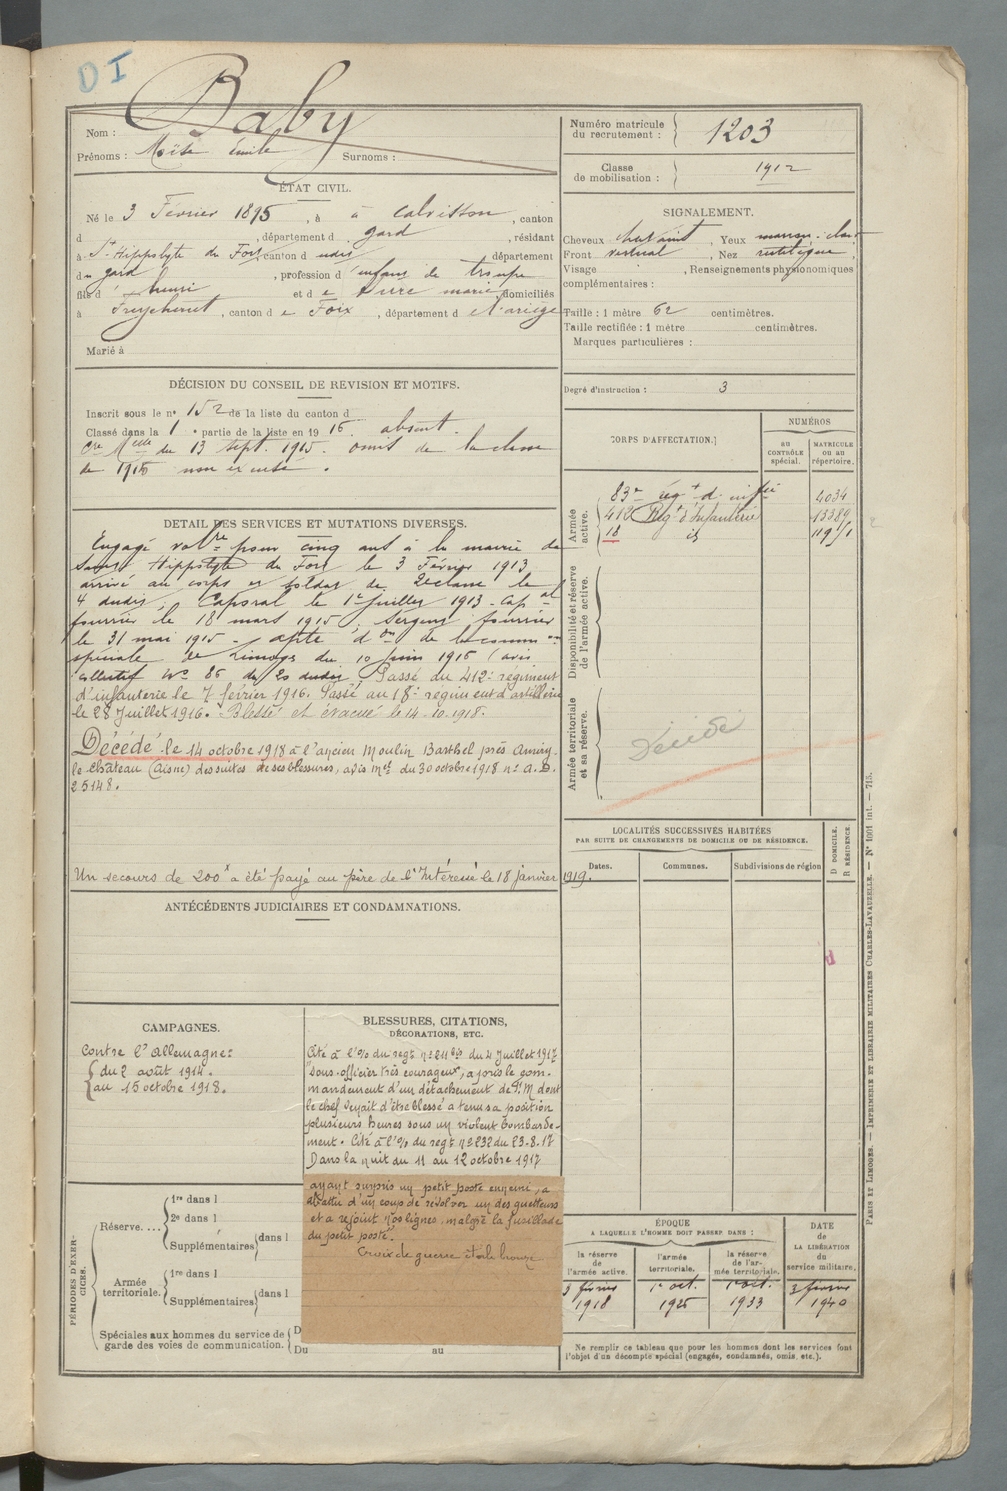 D I
Nom : Baby
Prénoms : Moïse émile Surnoms :
Numéro matricule du recrutement : 1203
Classe de mobilisation : 1912
ÉTAT CIVIL.
Né le 3 Février 1895, à à Calvisson, canton
d , département d gard , résidant
à St Hippolyte du Fort canton d udit département
du gard , profession d enfant de troupe
fils d henri et de marie, domiciliés
à Freychenet, canton de Foix, département de l'ariège
Marié à
SIGNALEMENT.
Cheveux , Yeux marron clair
Front vertical , Nez rectiligne
Visage , Renseignements physionomiques
complémentaires :
Taille : 1 mètre 62 centimètres.
Taille rectifiée : 1 mètre centimètres.
Marques particulières :
Degré d'instruction : 3
DÉCISION DU CONSEIL DE REVISION ET MOTIFS.
Inscrit sous le n° 152 de la liste du canton d
Classé dans la 1e partie de la liste en 1915. absent.
du 13 Sept. 1915. omis de la classe
de 1915 non excusé.
CORPS D'AFFECTATION.
NUMÉROS
AU CONTRÔLE spécial.
MATRICULE OU AU répertoire.
Armée active.
83e régt d'infie 4034
412 Régt d'Infanterie 13389
18 id 119
Disponibilité et réserve de l'armée active.
Armée territoriale et sa réserve.
Décédé
DETAIL DES SERVICES ET MUTATIONS DIVERSES.
Engagé volre pour cinq ans à la mairie de
Saint Hippolyte du Fort le 3 Février 1913
arrivé au corps et soldat de 2e classe le
4 dudit, Caporal le 1er Juillet 1913. Capal
fourrier le 18 mars 1915, Sergent fourrier
le 31 mai 1915 - apte don de la common
spéciale de Limoges du 10 Juin 1915 (avis
collectif No 86 du 20 dudit. Passé du 412e régiment
d'infanterie le 7 février 1916. Passé au 18e régiment d'artillerie
le 28 Juillet 1916. Blessé et évacué le 14-10-1918.
Décédé le 14 octobre 1918 à l'ancien Moulin Barthel près Amigny
le Château (Aisne) des suites de ses blessures, avis mel du 30 octobre 1918 n° A.D.
25148.
Un secours de 200 a été payé au père de l'Intéressé le 18 janvier 1919.
LOCALITÉS SUCCESSIVES HABITÉES
PAR SUITE DE CHANGEMENTS DE DOMICILE OU DE RÉSIDENCE.
Dates. Communes. Subdivisions de région
D DOMICILE. R RÉSIDENCE.
ANTÉCÉDENTS JUDICIAIRES ET CONDAMNATIONS.
CAMPAGNES.
Contre l'Allemagne:
du 2 août 1914.
au 15 octobre 1918.
BLESSURES, CITATIONS,
DÉCORATIONS, ETC.
Cité à l'O/ du régt n° 211 bis du 4 Juillet 1917
"Sous-officier très courageux, a pris le com-
mandement d'un détachement de dont
le chef venait d'être blessé a tenu sa position
plusieurs heures sous un violent bombarde-
ment. Cité à l'O/ du régt n° 232 du 23-8-17
Dans la nuit du 11 au 12 octobre 1917
ayant surpris un petit poste ennemi, a
abattu d'un coup de révolver un des guetteurs
et a rejoint nos lignes malgré la fusillade
du petit poste".
Croix de guerre étoile bronze
PÉRIODES D'EXERCICES.
Réserve.... 1re dans l
2e dans l
Supplémentaires dans l
Armée territoriale. 1re dans l
Supplémentaires dans l
Spéciales aux hommes du service de garde des voies de communication. D
Du au
ÉPOQUE
A LAQUELLE L'HOMME DOIT PASSER DANS :
la réserve de l'armée active.
l'armée territoriale.
la réserve de l'armée territoriale.
DATE de LA LIBÉRATION du service militaire.
3 février 1918
1er oct. 1925
1er oct. 1933
3 février 1940
Ne remplir ce tableau que pour les hommes dont les services font
l'objet d'un décompte spécial (engagés, condamnés, omis, etc.).
PARIS ET LIMOGES. — IMPRIMERIE ET LIBRAIRIE MILITAIRES CHARLES-LAVAUZELLE. — N° 1001 int. — 715.